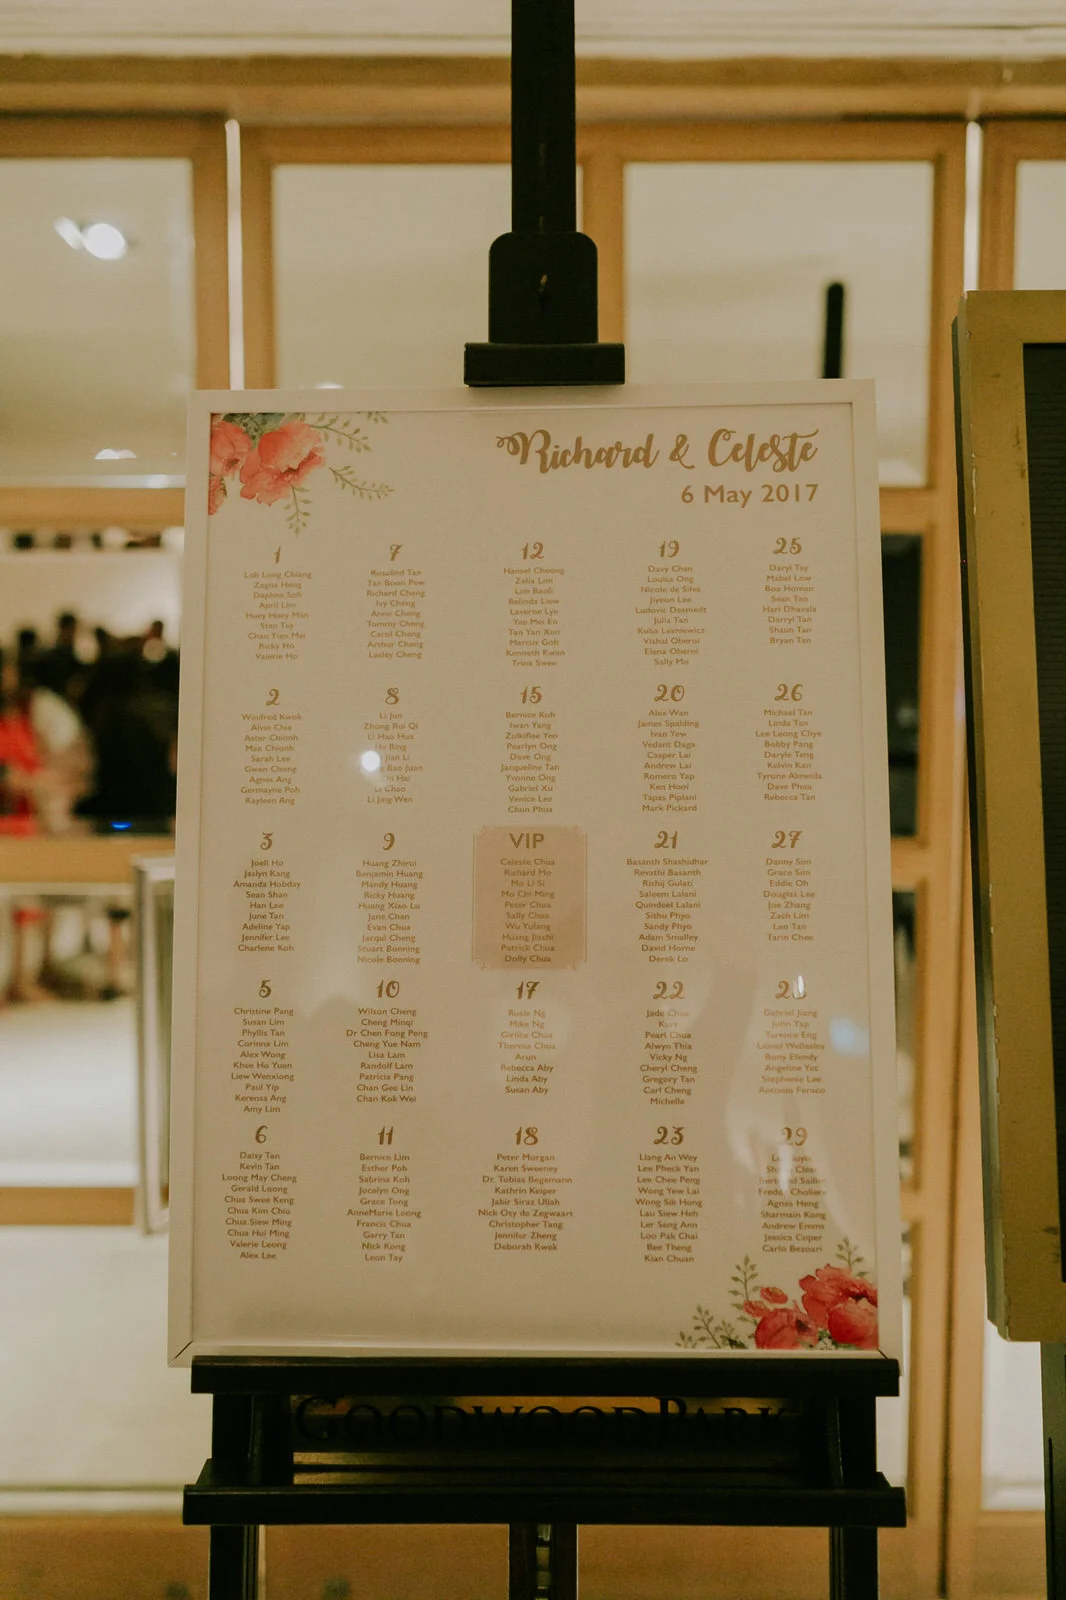 Richard & Celeste
6 May 2017
1
Loh Long Chiang
Zagna Heng
Daphne Soh
April Lim
Huey Huey Min
Stan Tay
Chan Yien Mei
Ricky Ho
Valerie Ho
2
Winfred Kwok
Alvin Chia
Aster Chionh
Max Chionh
Sarah Lee
Gwen Chong
Agnes Ang
Germayne Poh
Kayleen Ang
3
Joell Ho
Jaslyn Kang
Amanda Hobday
Sean Shan
Han Lee
June Tan
Adeline Yap
Jennifer Lee
Charlene Koh
5
Christine Pang
Susan Lim
Phyllis Tan
Corinna Lim
Alex Wong
Khee Ho Yuen
Liew Wenxiong
Paul Yip
Kerensa Ang
Amy Lim
6
Daisy Tan
Kevin Tan
Loong May Cheng
Gerald Loong
Chua Swee Keng
Chua Kim Chiu
Chua Siew Ming
Chua Hui Ming
Valerie Leong
Alex Lee
7
Rosalind Tan
Tan Boon Pew
Richard Cheng
Ivy Cheng
Anne Cheng
Tommy Cheng
Carol Cheng
Arthur Cheng
Lesley Cheng
8
Li Jun
Zhong Rui Qi
Li Hao Hua
He Bing
Jian Li
Bao Juan
Hai
Li Chao
Li Jing Wen
9
Huang Zhirui
Benjamin Huang
Mandy Huang
Ricky Huang
Huang Xiao Lu
Jane Chan
Evan Chua
Jacqui Cheng
Stuart Bonning
Nicole Bonning
10
Wilson Cheng
Cheng Minqi
Dr Chen Fong Peng
Cheng Yue Nam
Lisa Lam
Randolf Lam
Patricia Pang
Chan Gee Lin
Chan Kok Wei
11
Bernice Lim
Esther Poh
Sabrina Koh
Jocelyn Ong
Grace Tong
AnneMarie Leong
Francis Chua
Garry Tan
Nick Kong
Leon Tay
12
Hansel Cheong
Zelia Lim
Lim Baoli
Belinda Liew
Laverne Lye
Yee Mei En
Tan Yan Xun
Marcus Goh
Kenneth Kwan
Trina Swee
15
Bernice Koh
Iwan Yang
Zulkiflee Yeo
Pearlyn Ong
Dave Ong
Jacqueline Tan
Yvonne Ong
Gabriel Xu
Venice Lee
Chun Phua
VIP
Celeste Chua
Richard Mo
Mo Li Si
Mo Chi Ming
Peter Chua
Sally Chua
Wu Yufang
Huang Jiazhi
Patrick Chua
Dolly Chua
17
Rosie Ng
Mike Ng
Girlice Chua
Theresa Chua
Arun
Rebecca Aby
Linda Aby
Susan Aby
18
Peter Morgan
Karen Sweeney
Dr. Tobias Begemann
Kathrin Keiper
Jabir Siraz Ullah
Nick Osy de Zegwaart
Christopher Tang
Jennifer Zheng
Deborah Kwek
19
Davy Chen
Louisa Ong
Nicole de Silva
Jiyeon Lee
Ludovic Desmedt
Julia Tan
Kuba Lesniewicz
Vishal Oberoi
Elena Oberoi
Sally Mo
20
Alex Wan
James Spalding
Ivan Yew
Vedant Daga
Casper Lai
Andrew Lai
Romero Yap
Ken Hooi
Tapas Piplani
Mark Pickard
21
Basanth Shashidhar
Revathi Basanth
Rishij Gulati
Saleem Lalani
Quindeel Lalani
Sithu Phyo
Sandy Phyo
Adam Smalley
David Horne
Derek Lo
22
Jade Chua
Kurt
Pearl Chua
Alwyn Thia
Vicky Ng
Cheryl Cheng
Gregory Tan
Carl Cheng
Michelle
23
Liang An Wey
Lee Pheck Yan
Lee Chee Peng
Wong Yew Lai
Wong Sik Hong
Lau Siew Heh
Ler Seng Ann
Loo Pak Chai
Bee Theng
Kian Chuan
25
Daryl Tay
Mabel Low
Boa Homan
Sean Tan
Hari Dhavala
Darryl Tan
Shaun Tan
Bryan Tan
26
Michael Tan
Linda Tan
Lee Leong Chye
Bobby Pang
Daryle Teng
Kelvin Kan
Tyrone Almeida
Dave Phua
Rebecca Tan
27
Danny Sim
Grace Sim
Eddie Oh
Douglas Lee
Joe Zhang
Zach Lim
Leo Tan
Tarin Chee
28
Gabriel Jiang
John Yap
Terence Eng
Lionel Wellesley
Bony Elendy
Angeline Yet
Stephenie Lee
Antonio Feraco
29
Freddy
Agnes Heng
Sharmain Kong
Andrew Emms
Jessica Cuper
Carlo Bezoari
GOODWOOD PARK